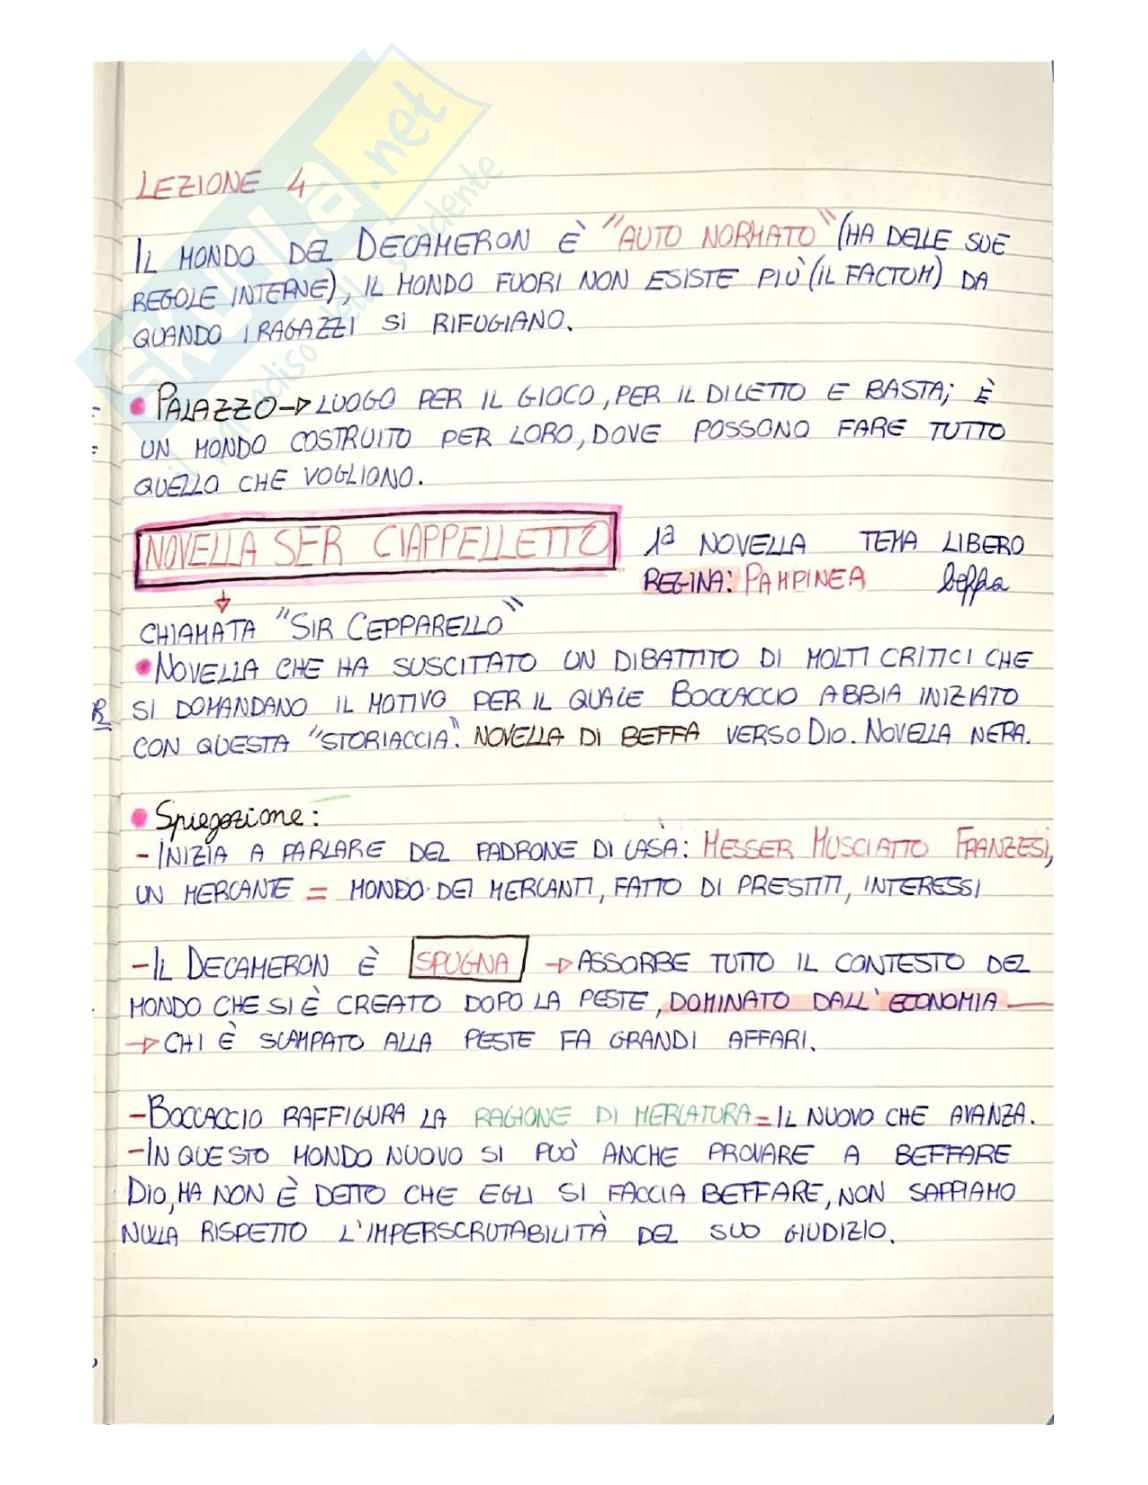 LEZIONE 4
IL MONDO DEL DECAMERON È "AUTO NORMATO" (HA DELLE SUE
REGOLE INTERNE), IL MONDO FUORI NON ESISTE PIÙ (IL FACTUM) DA
QUANDO I RAGAZZI SI RIFUGIANO.
• PALAZZO → LUOGO PER IL GIOCO, PER IL DILETTO E BASTA; È
UN MONDO COSTRUITO PER LORO, DOVE POSSONO FARE TUTTO
QUELLO CHE VOGLIONO.
NOVELLA SER CIAPPELLETTO 1ª NOVELLA TEMA LIBERO
REGINA: PAMPINEA beffa
↓
CHIAMATA "SIR CEPPARELLO"
• NOVELLA CHE HA SUSCITATO UN DIBATTITO DI MOLTI CRITICI CHE
SI DOMANDANO IL MOTIVO PER IL QUALE BOCCACCIO ABBIA INIZIATO
CON QUESTA "STORIACCIA". NOVELLA DI BEFFA VERSO DIO. NOVELLA NERA.
• Spiegazione:
- INIZIA A PARLARE DEL PADRONE DI CASA: MESSER MUSCIATTO FRANZESI,
UN MERCANTE = MONDO DEI MERCANTI, FATTO DI PRESTITI, INTERESSI
- IL DECAMERON È SPUGNA → ASSORBE TUTTO IL CONTESTO DEL
MONDO CHE SI È CREATO DOPO LA PESTE, DOMINATO DALL'ECONOMIA
→ CHI È SCAMPATO ALLA PESTE FA GRANDI AFFARI.
- BOCCACCIO RAFFIGURA LA RAGIONE DI MERCATURA = IL NUOVO CHE AVANZA.
- IN QUESTO MONDO NUOVO SI PUÒ ANCHE PROVARE A BEFFARE
DIO, MA NON È DETTO CHE EGLI SI FACCIA BEFFARE, NON SAPPIAMO
NULLA RISPETTO L'IMPERSCRUTABILITÀ DEL SUO GIUDIZIO.
skuola.net
il paradiso dello studente